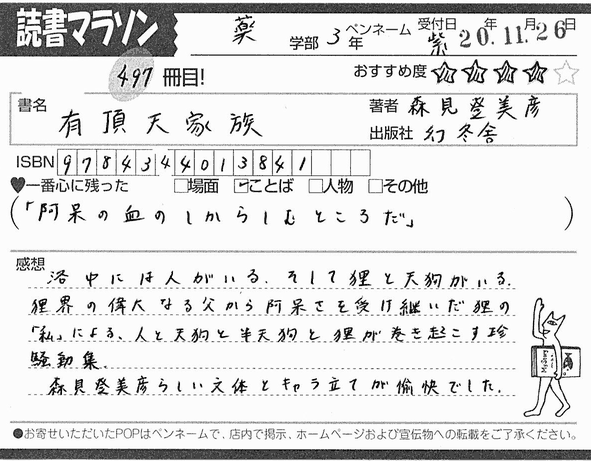 読書マラソン
薬 学部 3年 ペンネーム 紫 受付日 20.年11.月26日
497冊目!
おすすめ度 ★★★★☆
書名 有頂天家族
著者 森見登美彦
出版社 幻冬舎
ISBN 9784344013841
♥一番心に残った □場面 ☑ことば □人物 □その他
(「阿呆の血のしからしむところだ」)
感想
洛中には人がいる、そして狸と天狗がいる.
狸界の偉大なる父から阿呆さを受け継いだ狸の
「私」による、人と天狗と半天狗と狸が巻き起こす珍
騒動集.
森見登美彦らしい文体とキャラ立てが愉快でした.
●お寄せいただいたPOPはペンネームで、店内で掲示、ホームページおよび宣伝物への転載をご了承ください。